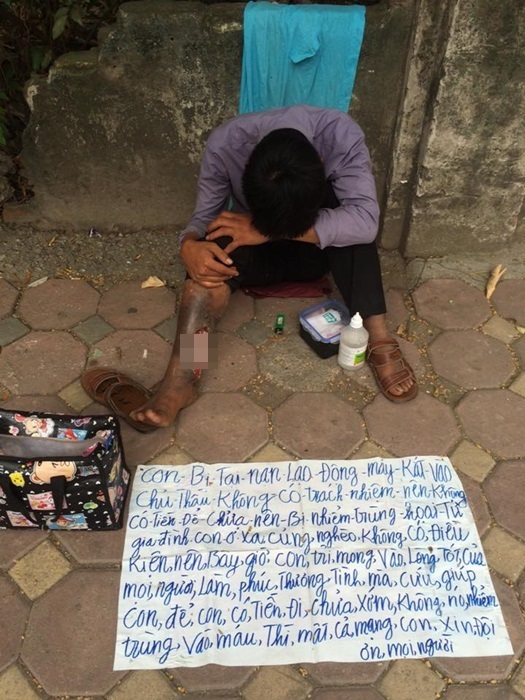 Con-Bị-Tai-nạn Lao-Động-máy-Kát-Vào
Chủ-Thầu-Không-Có-Trách-nhiệm-nên-Không
Có-tiền-Để-Chữa-nên-Bị-nhiễm-Trùng-Hoại-Tử
gia đình con ở xa, Cũng nghèo, không, Có, Điều
Kiện, nên, Bây, giờ, Con, trỉ, mong, Vào, Lòng Tốt, Của
mọi, người, Làm, phúc, Thương, Tình, mà, Cứu, giúp
Con, để, con, có, Tiền, Đi, Chữa, Xớm, Không, nó, nhiễm
trùng, Vào, máu, Thì, mất, Cả, mạng, Con, Xin, Đội
ơn, mọi, người